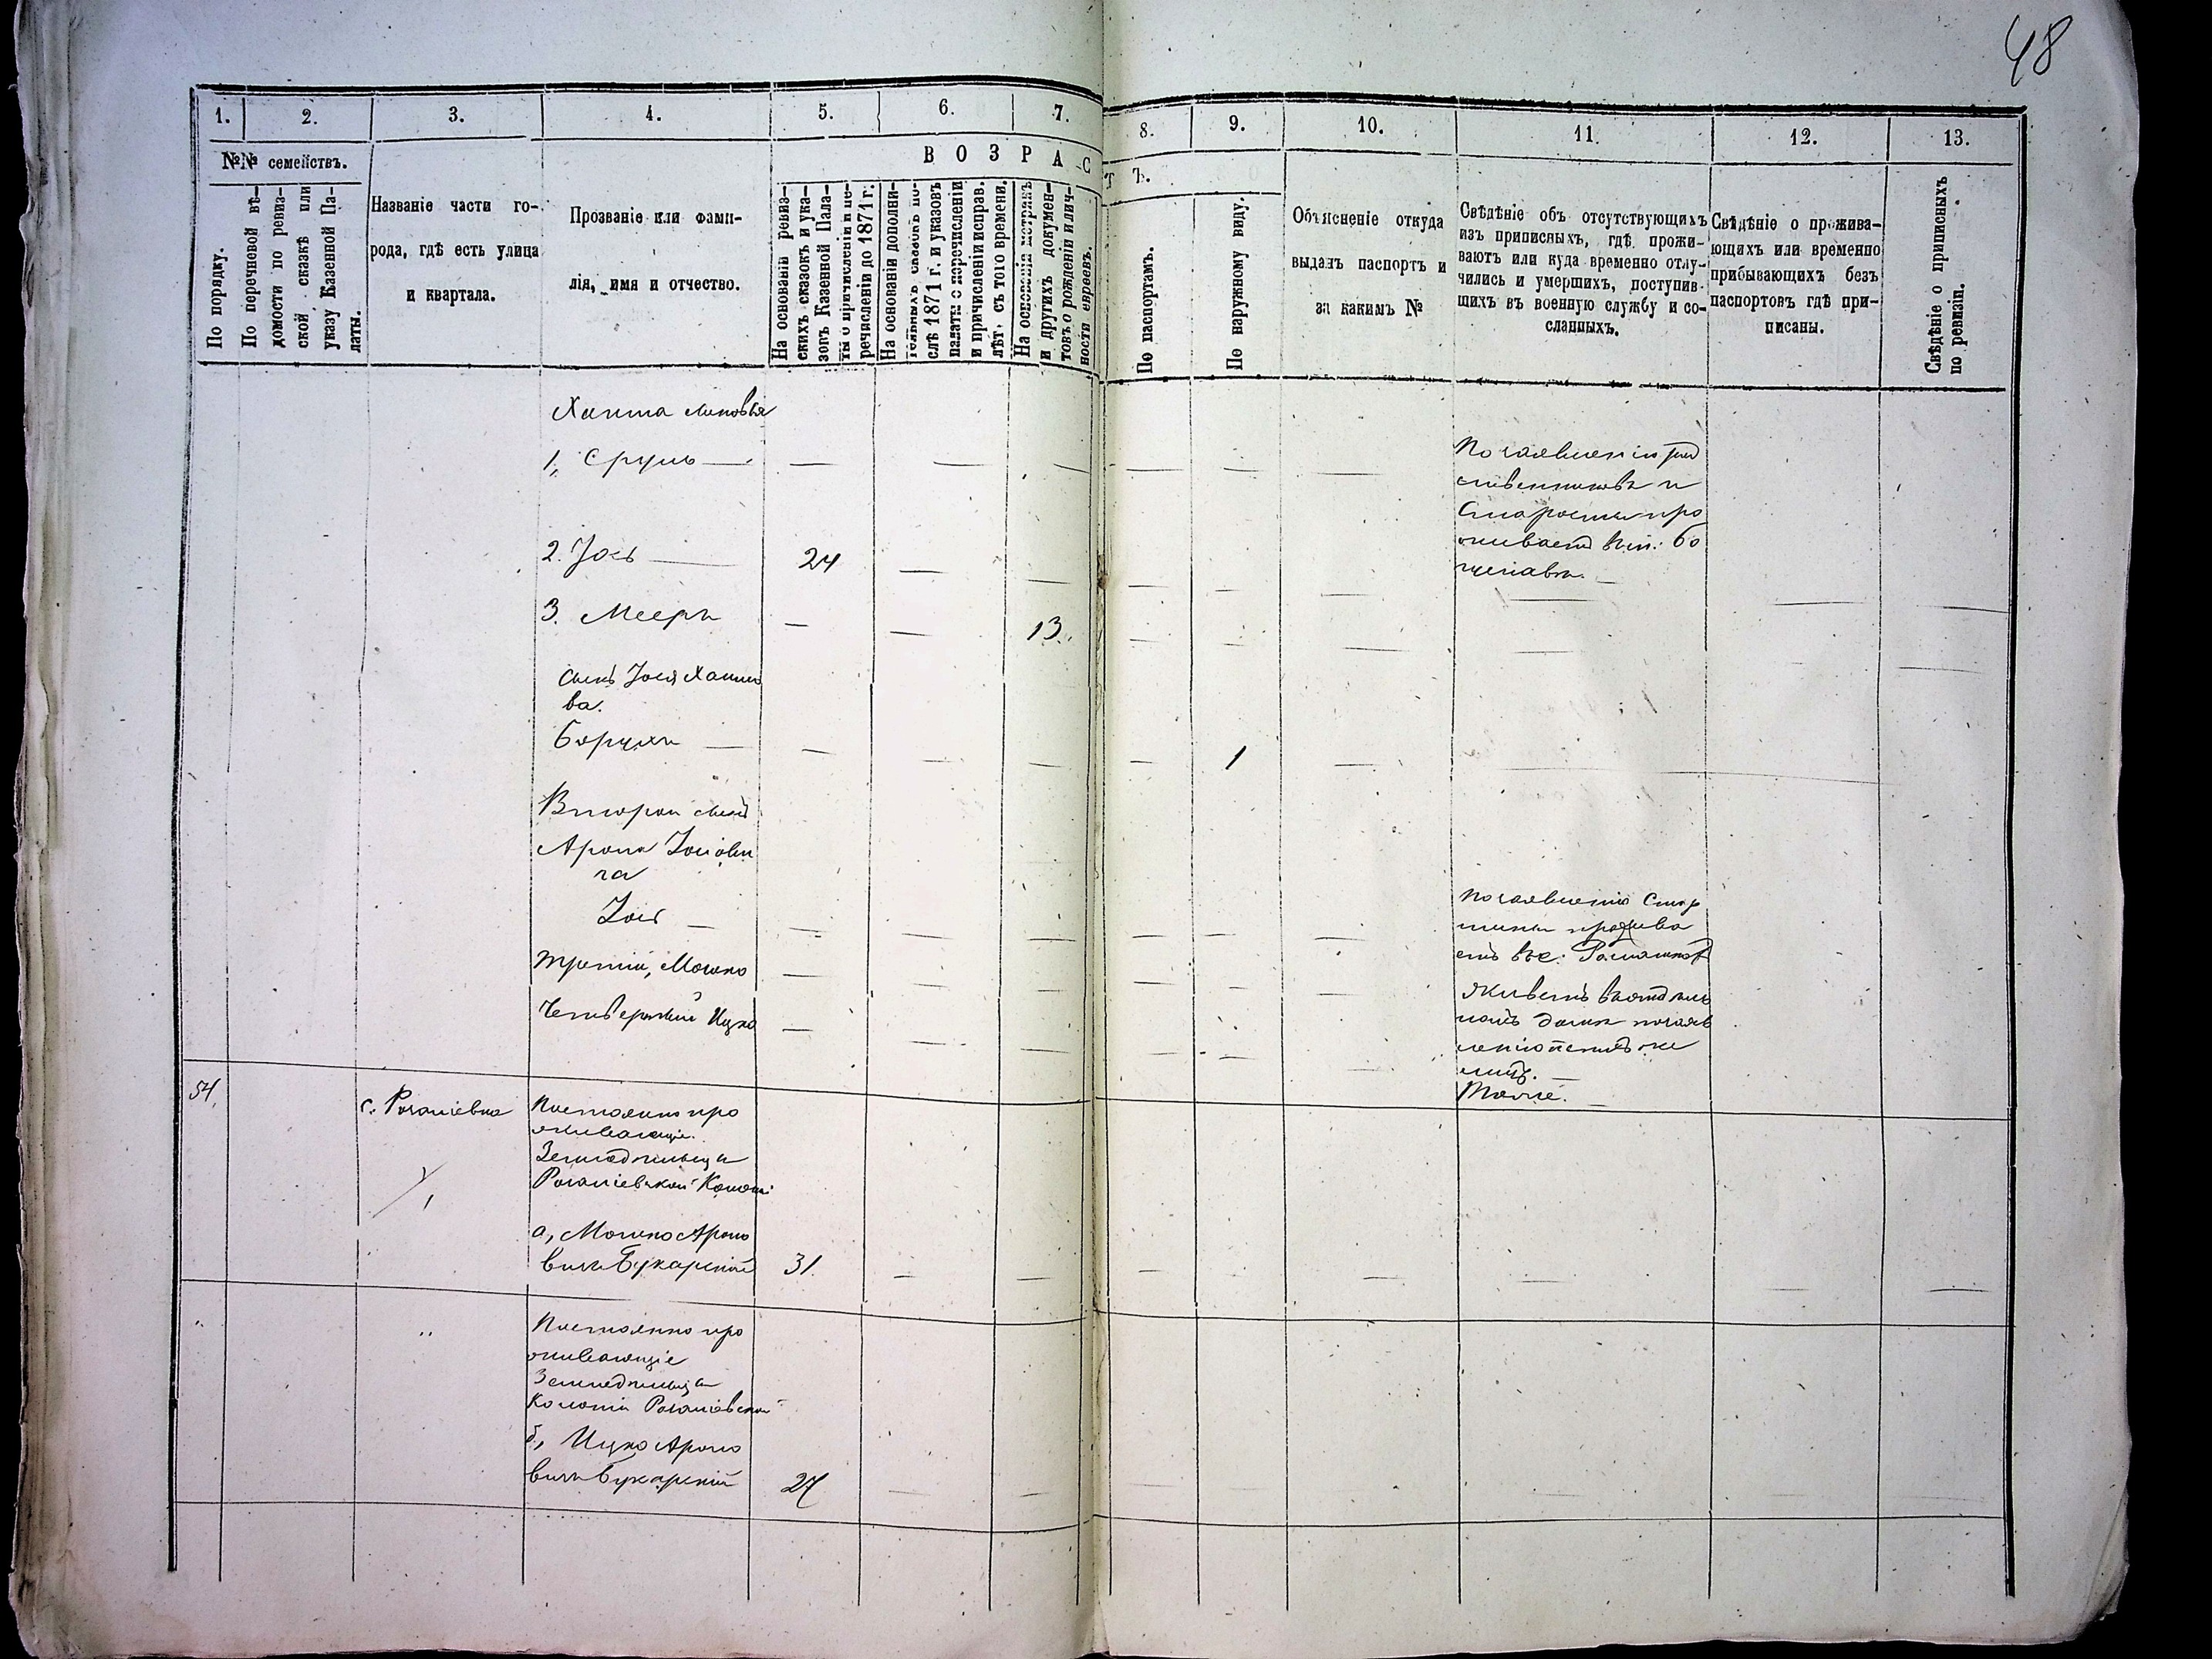 48
1. 2. 3. 4. 5. 6. 7. 8. 9. 10. 11. 12. 13.
№№ семействъ.
По порядку.
По перечневой вѣ-
домости по ревиз-
ской сказкѣ или
указу Казенной Па-
латы.
Названіе части го-
рода, гдѣ есть улица
и квартала.
Прозваніе или фами-
лія, имя и отчество.
ВОЗРАСТЪ.
На основаніи ревиз-
скихъ сказокъ и ука-
зовъ Казенной Пала-
ты о причисленіи и пе-
речисленіи до 1871 г.
На основаніи дополни-
тельныхъ сказокъ по-
слѣ 1871 г. и указовъ
палаты о перечисленіи
и причисленіи исправ.
лѣтъ съ того времени.
На основаніи метрикъ
и другихъ докумен-
товъ о рожденіи и лич-
ности евреевъ.
По паспортамъ.
По наружному виду.
Объясненіе откуда
выданъ паспортъ и
за какимъ №
Свѣдѣніе объ отсутствующихъ
изъ приписныхъ, гдѣ прожи-
ваютъ или куда временно отлу-
чились и умершихъ, поступив-
шихъ въ военную службу и со-
сланныхъ.
Свѣдѣніе о прожива-
ющихъ или временно
прибывающихъ безъ
паспортовъ гдѣ при-
писаны.
Свѣдѣніе о приписныхъ
по ревизіи.
Хаима сыновья
1, Сруль — — — — — — —
По заявленію род
ственниковъ и
Старосты про
живаетъ въ м. Бо
2. Іось — 24 — — — — —
3. Мееръ — — 13. — — — —
сынъ Іося Хаимо
ва.
Борухъ — — — — — 1 — —
Второй сынъ
Арона Іосіови
ча
Іось — — — — — — —
По заявленію Стар
шины прожива
етъ въ с.
третій, Мошко — — — — — —
Живетъ въ отдѣль
номъ домѣ по заяв
Четвертый Ицко — — — — — —
Тоже. —
54. с. Рогачевка
Постоянно про
живающіе
Земледѣльцы
Рогачевской Колоніи
а, Мошко Ароно
вичъ Букарскій 31. — — — — — — —
" "
Постоянно про
живающіе
Земледѣльцы
Колоніи Рогачевской
б, Ицко Ароно
вичъ Букарскій 27 — — — — — — — —